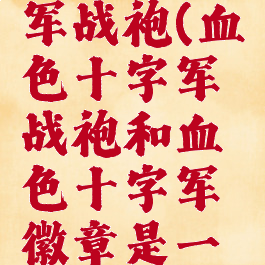 军战袍(血
色十字军
战袍和血
色十字军
徽章是一